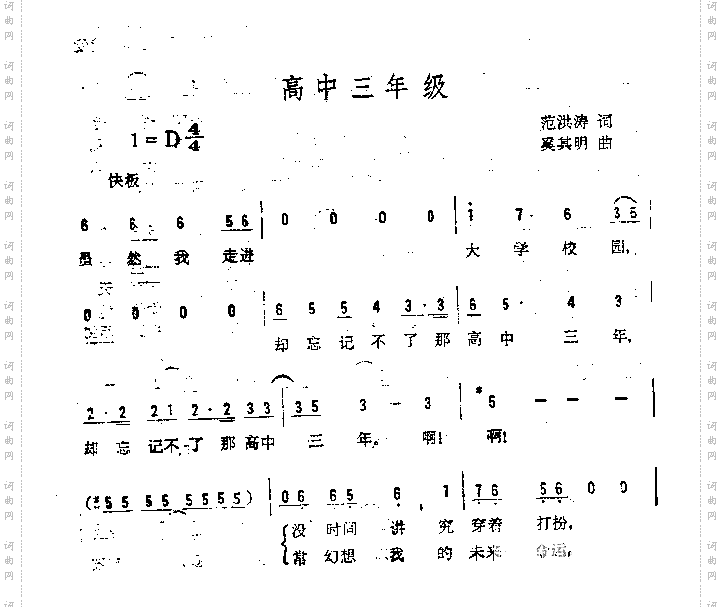 高中三年级
1=D 4/4
范洪涛 词
奚其明 曲
快板
6 6· 6 56 | 0 0 0 0 | i 7· 6 35 |
虽然我走进 大学校园,
0 0 0 0 | 6 5 5 4 3·3 | 6 5· 4 3 |
却忘记不了那高中三年,
2·2 21 2·2 33 | 35 3 - 3 | #5 - - - |
却忘记不了那高中三年。啊!啊!
(#55 55 5555) | 06 65 6· 1 | 76 56 0 0 |
没时间讲究穿着打扮,
常幻想我的未来
词曲网